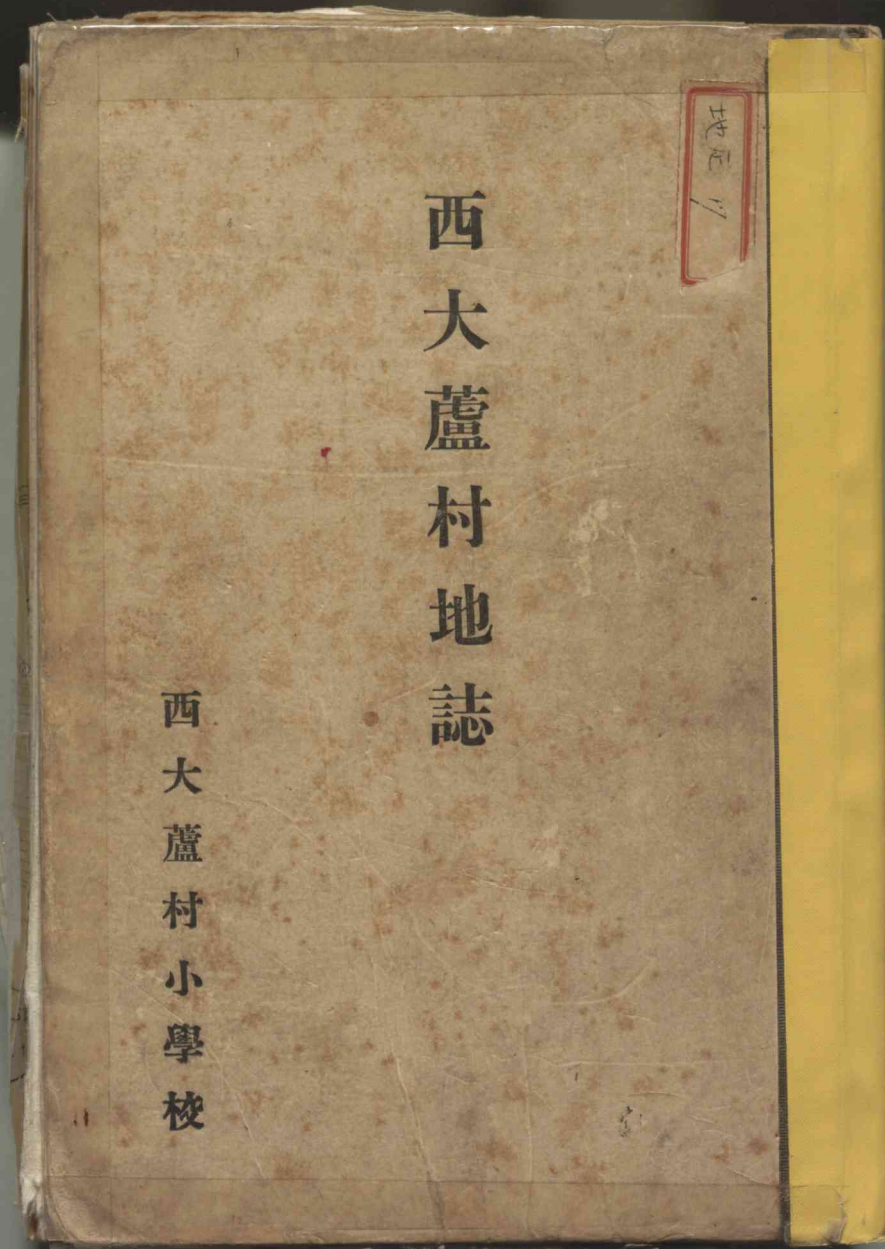 西大蘆村地誌
西大蘆村小學校